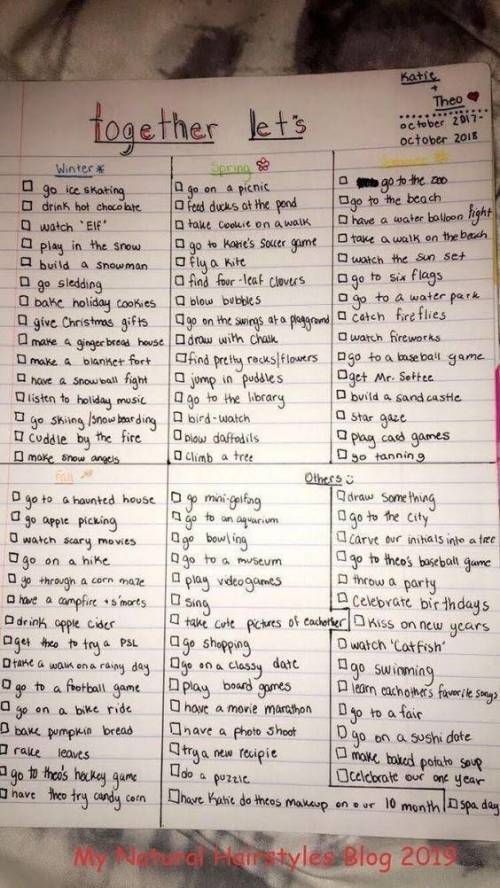 Katie
+
Theo
october 2017-
october 2018
together let's
Winter
go ice skating
drink hot chocolate
watch "Elf"
play in the snow
build a snowman
go sledding
bake holiday cookies
give Christmas gifts
make a gingerbread house
make a blanket fort
have a snowball fight
listen to holiday music
go skiing/snowboarding
cuddle by the fire
make snow angels
Spring
go on a picnic
feed ducks at the pond
take cookie on a walk
go to Katie's soccer game
fly a kite
find four-leaf clovers
blow bubbles
go on the swings at a playground
draw with chalk
find pretty rocks/flowers
jump in puddles
go to the library
bird-watch
blow daffodils
climb a tree
go to the zoo
go to the beach
have a water balloon fight
take a walk on the beach
watch the sun set
go to six flags
go to a water park
catch fireflies
watch fireworks
go to a baseball game
get Mr. Softee
build a sandcastle
star gaze
play card games
go tanning
Fall
go to a haunted house
go apple picking
watch scary movies
go on a hike
go through a corn maze
have a campfire + s'mores
drink apple cider
get theo to try a PSL
take a walk on a rainy day
go to a football game
go on a bike ride
bake pumpkin bread
rake leaves
go to theo's hockey game
have theo try candy corn
Others
go mini-golfing
go to an aquarium
go bowling
go to a museum
play videogames
sing
take cute pictures of eachother
go shopping
go on a classy date
play board games
have a movie marathon
have a photo shoot
try a new recipie
do a puzzle
have Katie do theos makeup on our 10 month
draw something
go to the city
carve our initials into a tree
go to theo's baseball game
throw a party
celebrate birthdays
kiss on new years
watch 'Catfish'
go swimming
learn eachothers favorite songs
go to a fair
go on a sushi date
make baked potato soup
celebrate our one year
spa day
My Natural Hairstyles Blog 2019